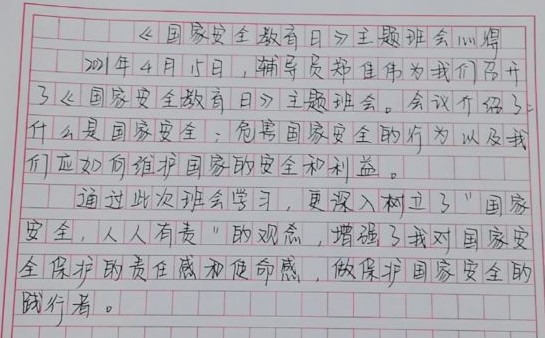 《国家安全教育日》主题班会心得
2021年4月15日，辅导员郑佳伟为我们召开
了《国家安全教育日》主题班会。会议介绍了
什么是国家安全；危害国家安全的行为以及我
们应如何维护国家的安全和利益。
通过此次班会学习，更深入树立了"国家
安全，人人有责"的观念，增强了我对国家安
全保护的责任感和使命感，做保护国家安全的
践行者。